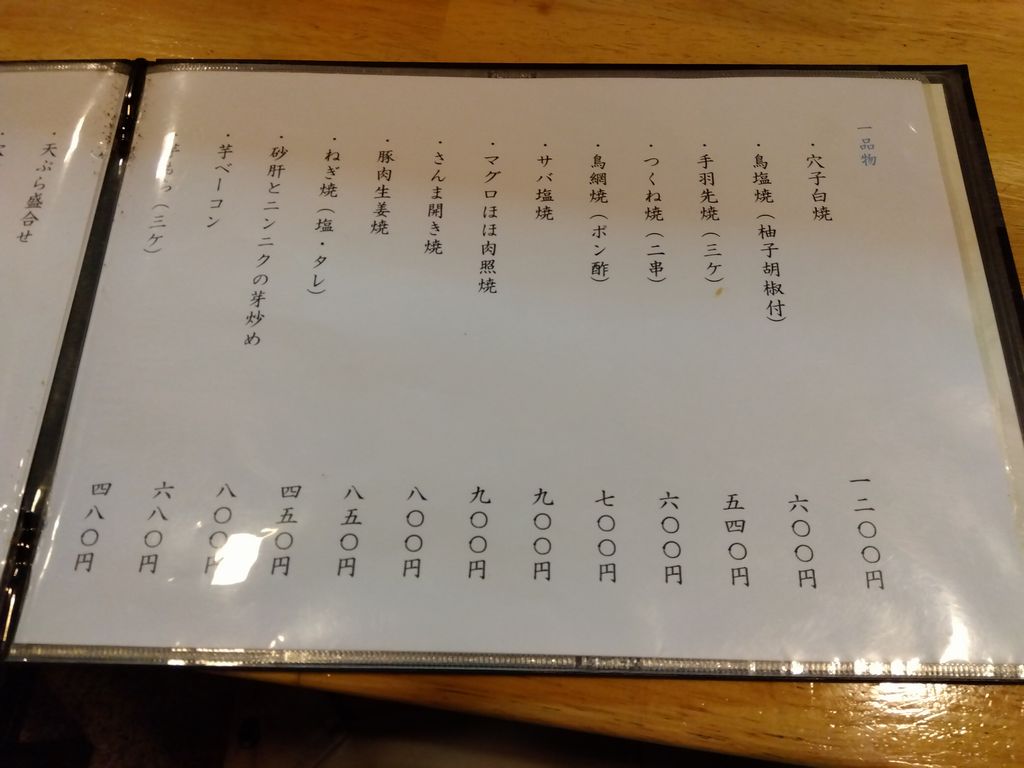 一品物
・穴子白焼 一二〇〇円
・鳥塩焼（柚子胡椒付） 六〇〇円
・手羽先焼（三ケ） 五四〇円
・つくね焼（二串） 六〇〇円
・鳥網焼（ポン酢） 七〇〇円
・サバ塩焼 九〇〇円
・マグロほほ肉照焼 九〇〇円
・さんま開き焼 八〇〇円
・豚肉生姜焼 八五〇円
・ねぎ焼（塩・タレ） 四五〇円
・砂肝とニンニクの芽炒め 八〇〇円
・芋ベーコン 六八〇円
（三ケ） 四八〇円
・天ぷら盛合せ